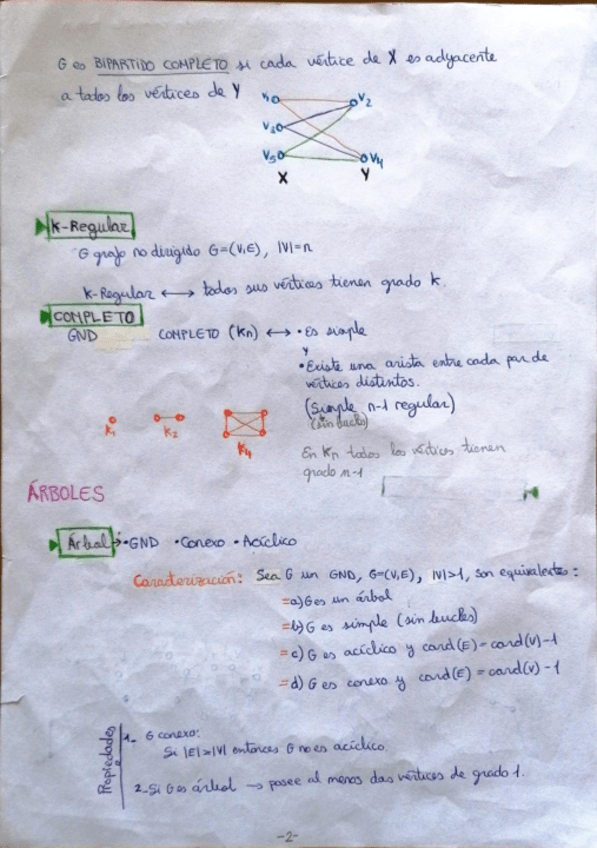 G es BIPARTIDO COMPLETO si cada vértice de X es adyacente
a todos los vértices de Y
V1 V2
V3
V5 V4
X Y
K-Regular
G grafo no dirigido G=(V,E), |V|=n
K-Regular ⟷ todos sus vértices tienen grado K.
COMPLETO
GND COMPLETO (Kn) ⟷ • Es simple
y
• Existe una arista entre cada par de
vértices distintos.
(Simple n-1 regular)
(sin bucles)
K1 K2 K4
En Kn todos los vértices tienen
grado n-1
ÁRBOLES
Árbol → • GND • Conexo • Acíclico
Caracterización: Sea G un GND, G=(V,E), |V|>1, son equivalentes:
=a) G es un árbol
=b) G es simple (sin bucles)
=c) G es acíclico y card(E)=card(V)-1
=d) G es conexo y card(E)=card(V)-1
Propiedades
1- G conexo:
Si |E|≥|V| entonces G no es acíclico
2- Si G es árbol → posee al menos dos vértices de grado 1.
-2-